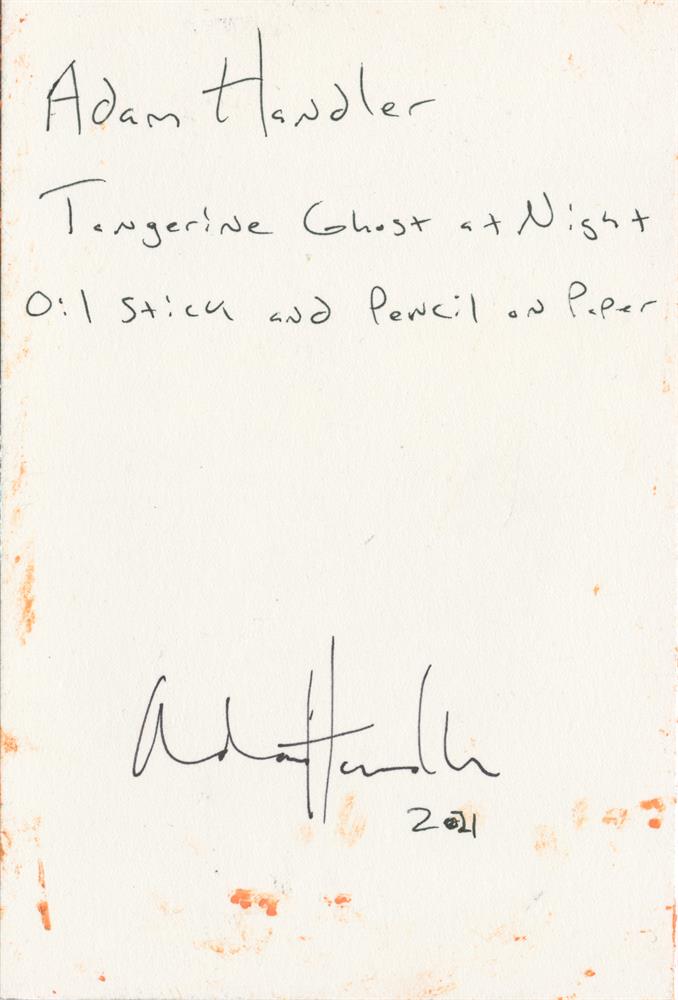 Adam Handler
Tangerine Ghost at Night
Oil Stick and Pencil on Paper
Adam Handler
2021